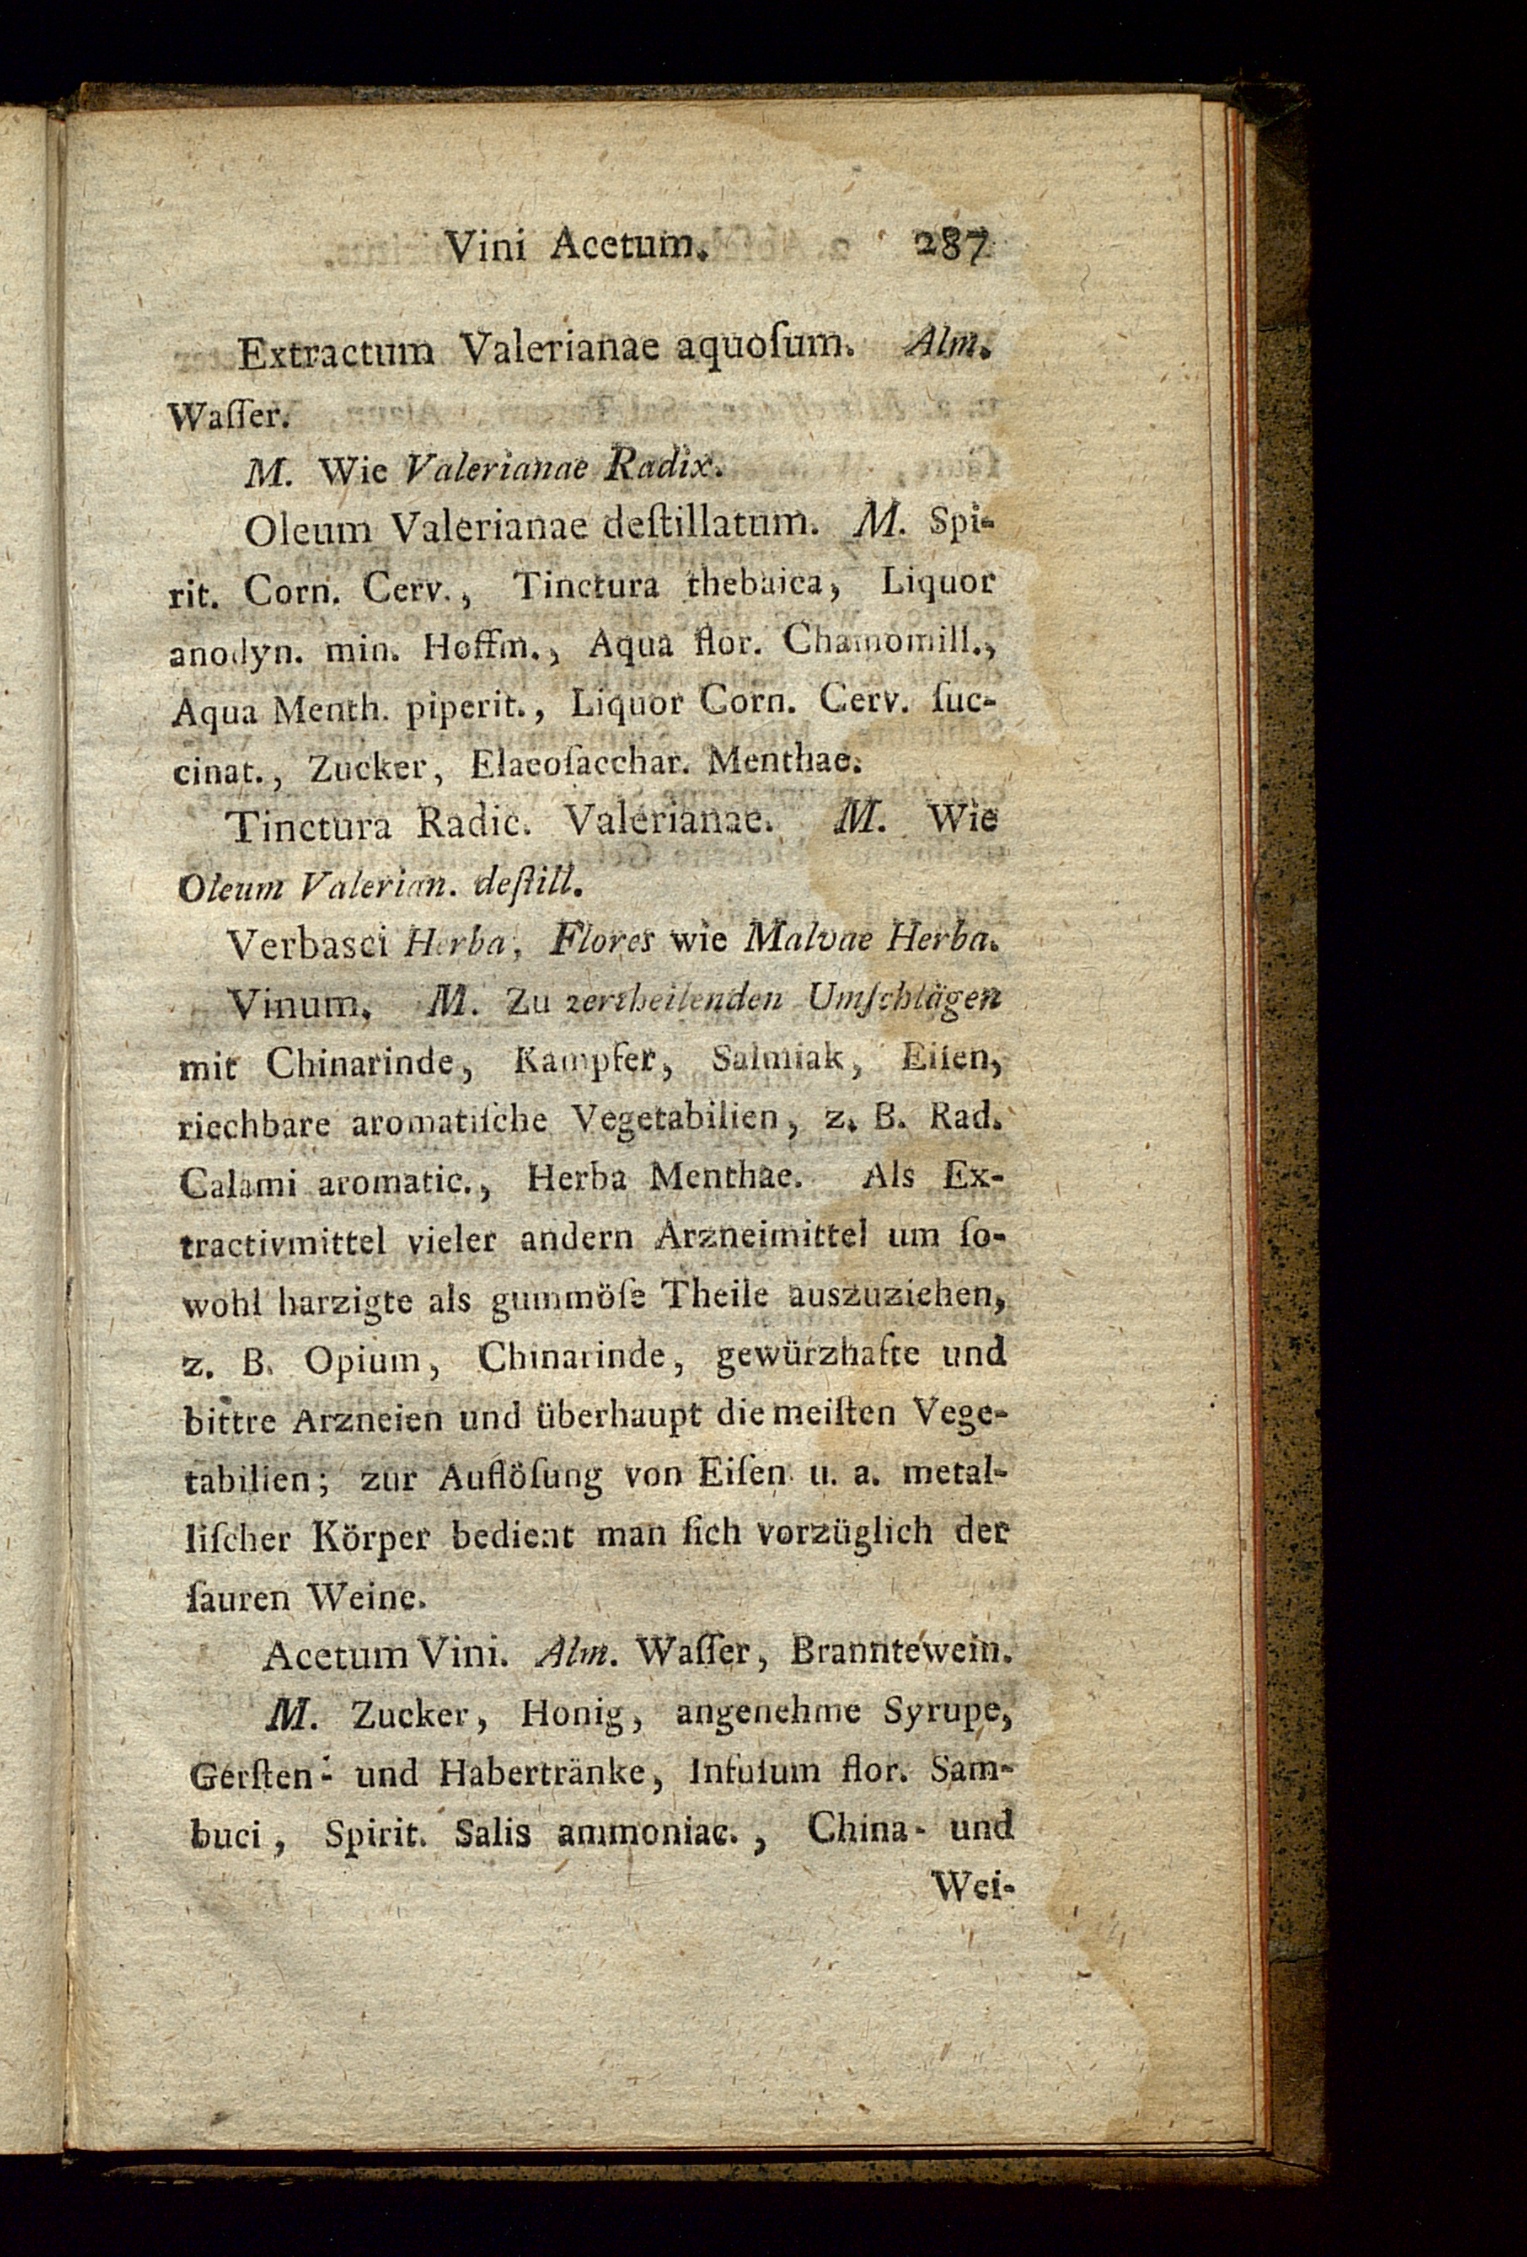 Vini Acetum. 287
Extractum Valerianae aquoſum. Alm.
Waſſer.
M. Wie Valerianae Radix.
Oleum Valerianae deſtillatum. M. Spi-
rit. Corn. Cerv., Tinctura thebaica, Liquor
anodyn. min. Hoffm., Aqua flor. Chamomill.,
Aqua Menth. piperit., Liquor Corn. Cerv. ſuc-
cinat., Zucker, Elaeoſacchar. Menthae.
Tinctura Radic. Valerianae. M. Wie
Oleum Valerian. deſtill.
Verbasci Herba, Flores wie Malvae Herba.
Vinum. M. Zu zertheilenden Umſchlägen
mit Chinarinde, Kampfer, Salmiak, Eiſen,
riechbare aromatiſche Vegetabilien, z. B. Rad.
Calami aromatic., Herba Menthae. Als Ex-
tractivmittel vieler andern Arzneimittel um ſo-
wohl harzigte als gummöſe Theile auszuziehen,
z. B. Opium, Chinarinde, gewürzhafte und
bittre Arzneien und überhaupt die meiſten Vege-
tabilien; zur Auflöſung von Eiſen u. a. metal-
liſcher Körper bedient man ſich vorzüglich der
ſauren Weine.
Acetum Vini. Alm. Waſſer, Branntewein.
M. Zucker, Honig, angenehme Syrupe,
Gerſten- und Habertränke, Infuſum flor. Sam-
buci, Spirit. Salis ammoniac., China- und
Wei-